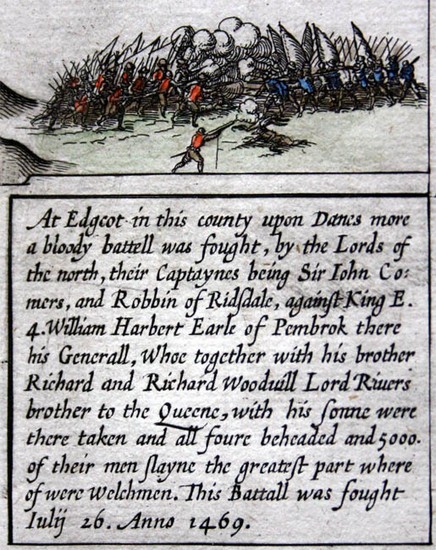 At Edgcot in this county upon Danes more
a bloody battell was fought, by the Lords of
the north, their Captaynes being Sir Iohn Co:
mers, and Robbin of Ridsdale, against King E.
4. William Harbert Earle of Pembrok there
his Generall, Whoe together with his brother
Richard and Richard Wooduill Lord Riuers
brother to the Queene, with his sonne were
there taken and all foure beheaded and 5000.
of their men slayne the greatest part where
of were Welchmen. This Battall was fought
Iulij 26. Anno 1469.